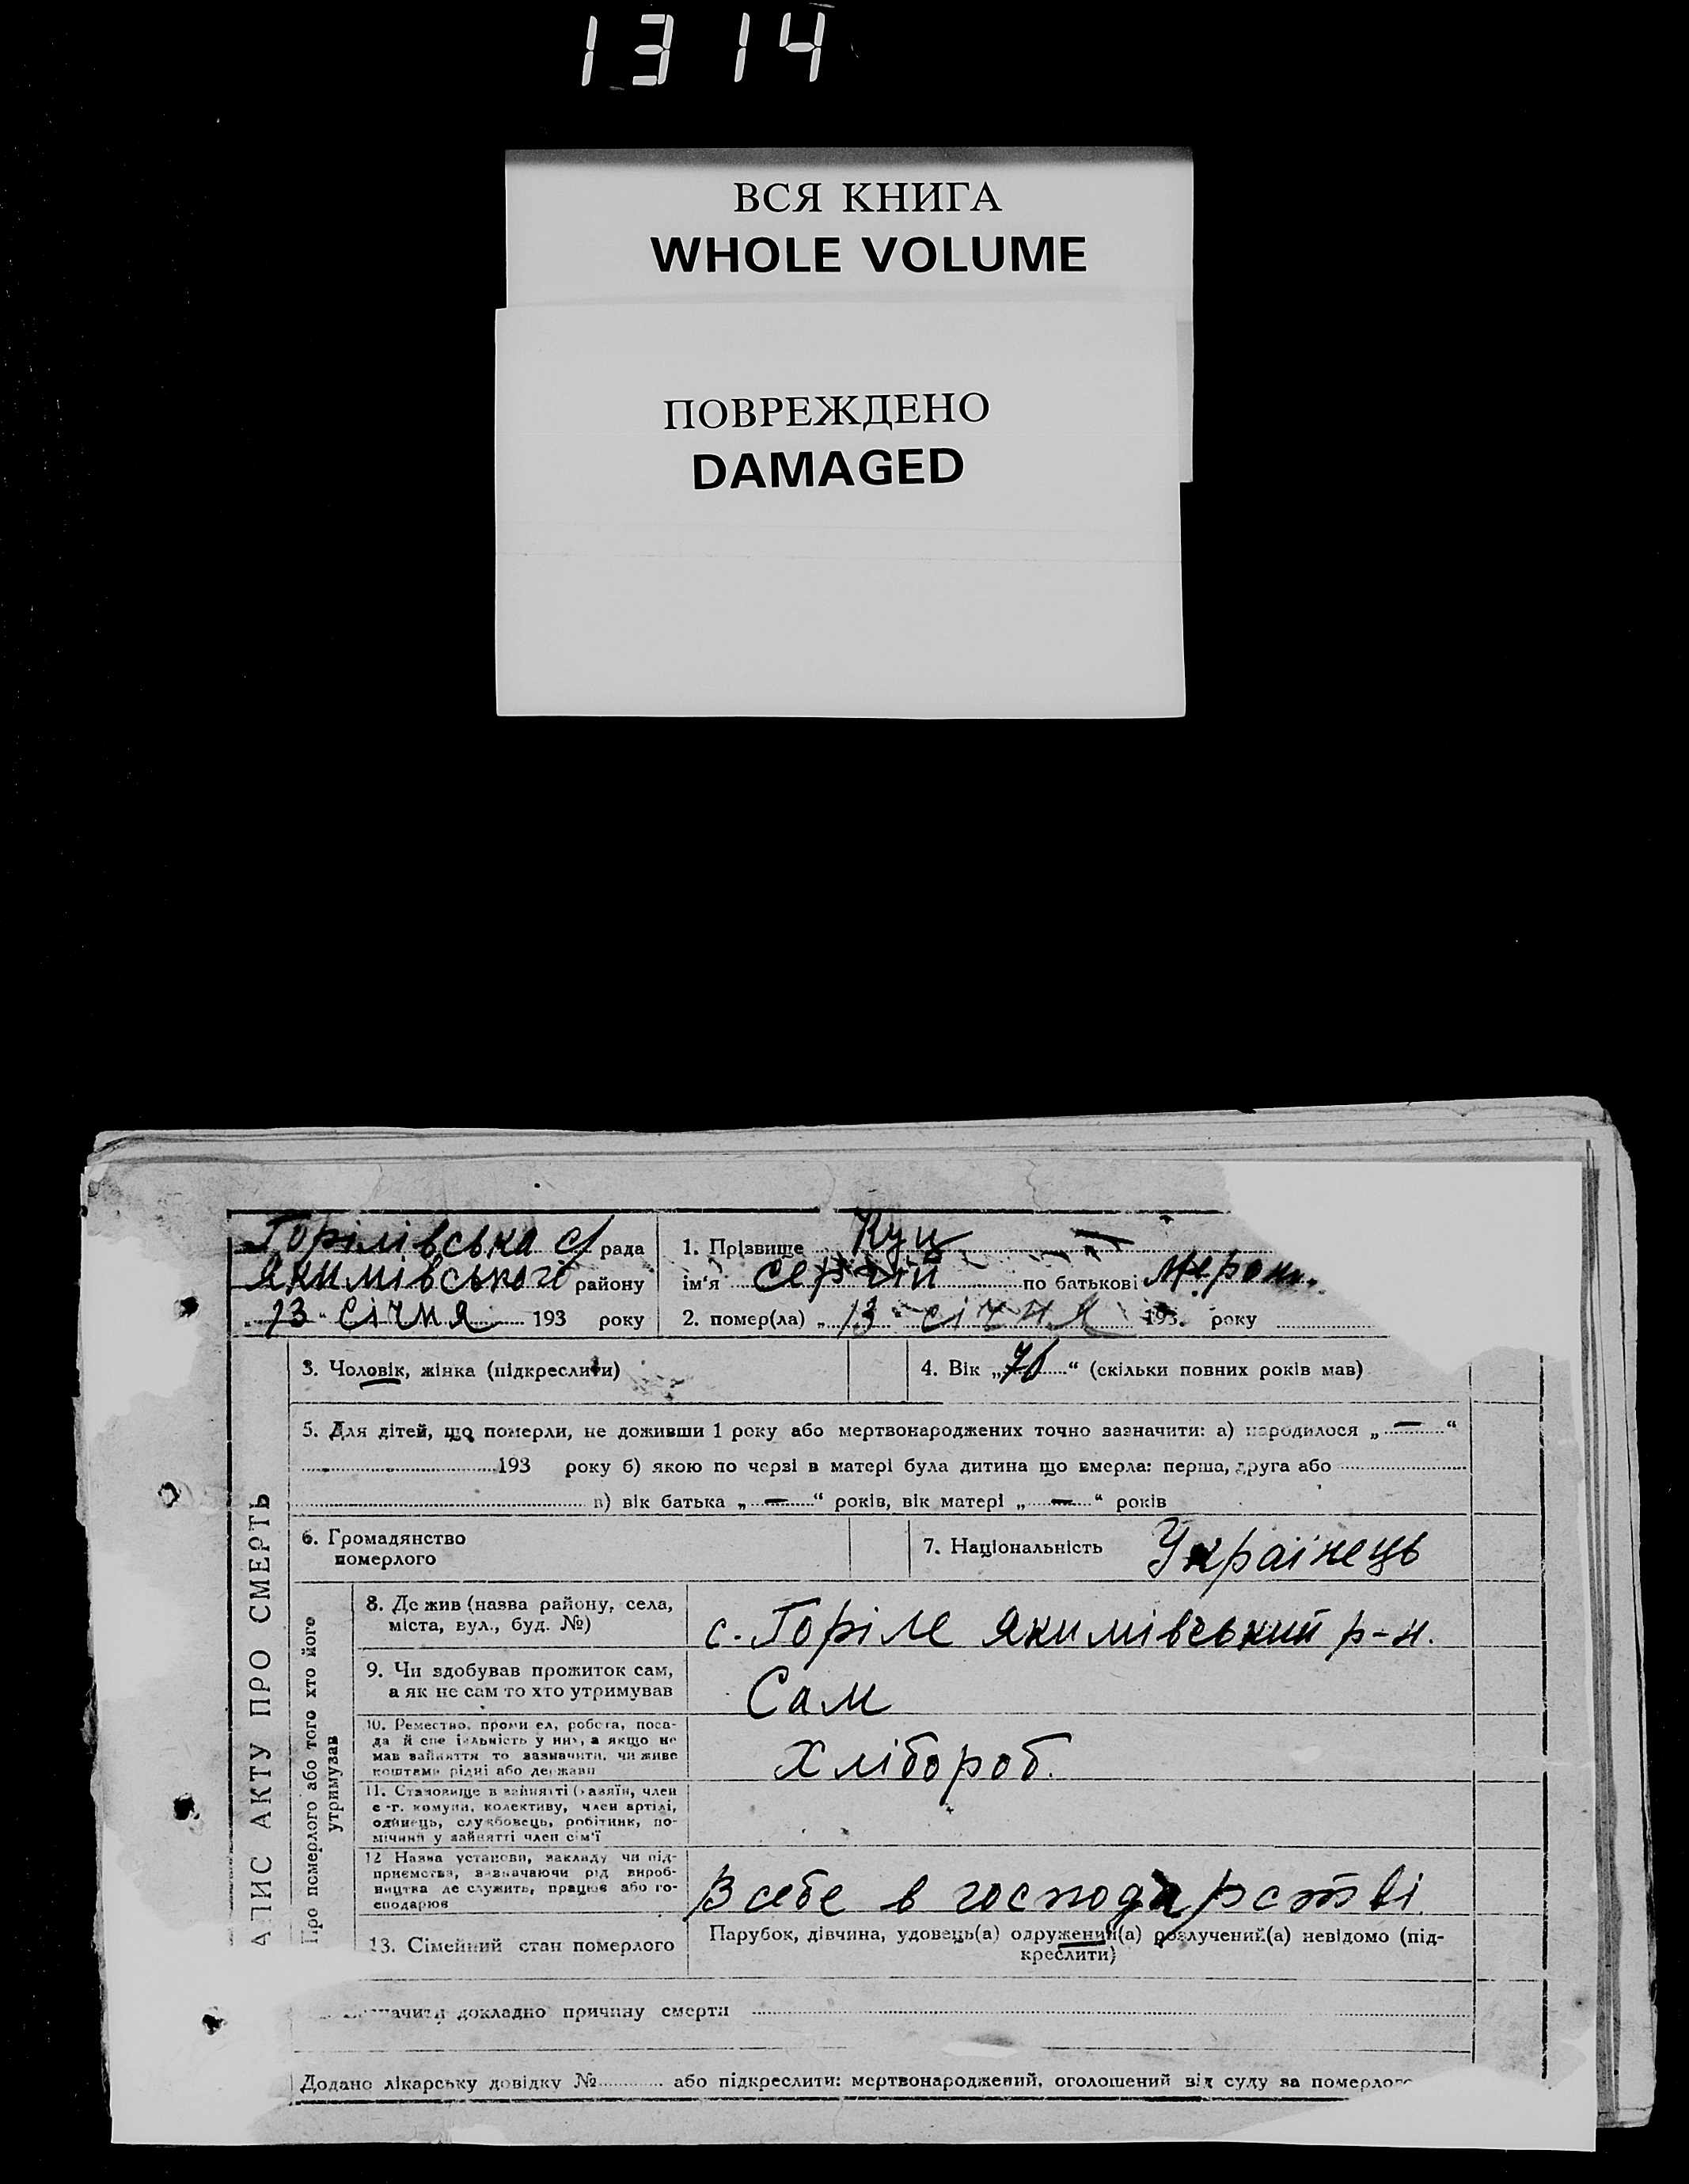 1314
ВСЯ КНИГА
WHOLE VOLUME
ПОВРЕЖДЕНО
DAMAGED
Горілівська с/рада
Якимівського району
"13" січня 193 року
1. Прізвище Куц
ім'я Сергій по батькові
2. помер(ла) „13" січня 193. року
АПИС АКТУ ПРО СМЕРТЬ
3. Чоловік, жінка (підкреслити)
4. Вік „ “ (скільки повних років мав)
5. Для дітей, що померли, не доживши 1 року або мертвонароджених точно зазначити: а) народилося „—“
193 року б) якою по черзі в матері була дитина що вмерла: перша, друга або
в) вік батька „—“ років, вік матері „—“ років
6. Громадянство
померлого
7. Національність Українець
Про померлого або того хто його
утримував
8. Де жив (назва району, села,
міста, вул., буд. №)
с. Горіле Якимівський р-н.
9. Чи здобував прожиток сам,
а як не сам то хто утримував
Сам
10. Ремество, промисел, робота, поса-
да й спеціяльність у ній, а якщо не
мав зайняття то зазначити, чи живе
коштами рідні або держави
Хлібороб.
11. Становище в зайнятті (хазяїн, член
с.-г. комуни, колективу, член артілі,
одинець, службовець, робітник, по-
мічний у зайнятті член сім'ї
12 Назва установи, закладу чи під-
приємства, зазначаючи рід вироб-
ництва де служить, працює або го-
сподарює
В себе в господарстві.
13. Сімейний стан померлого
Парубок, дівчина, удовець(а) одружений(а) розлучений(а) невідомо (під-
креслити)
значити докладно причину смерти
Додано лікарську довідку № або підкреслити: мертвонароджений, оголошений від суду за померлого